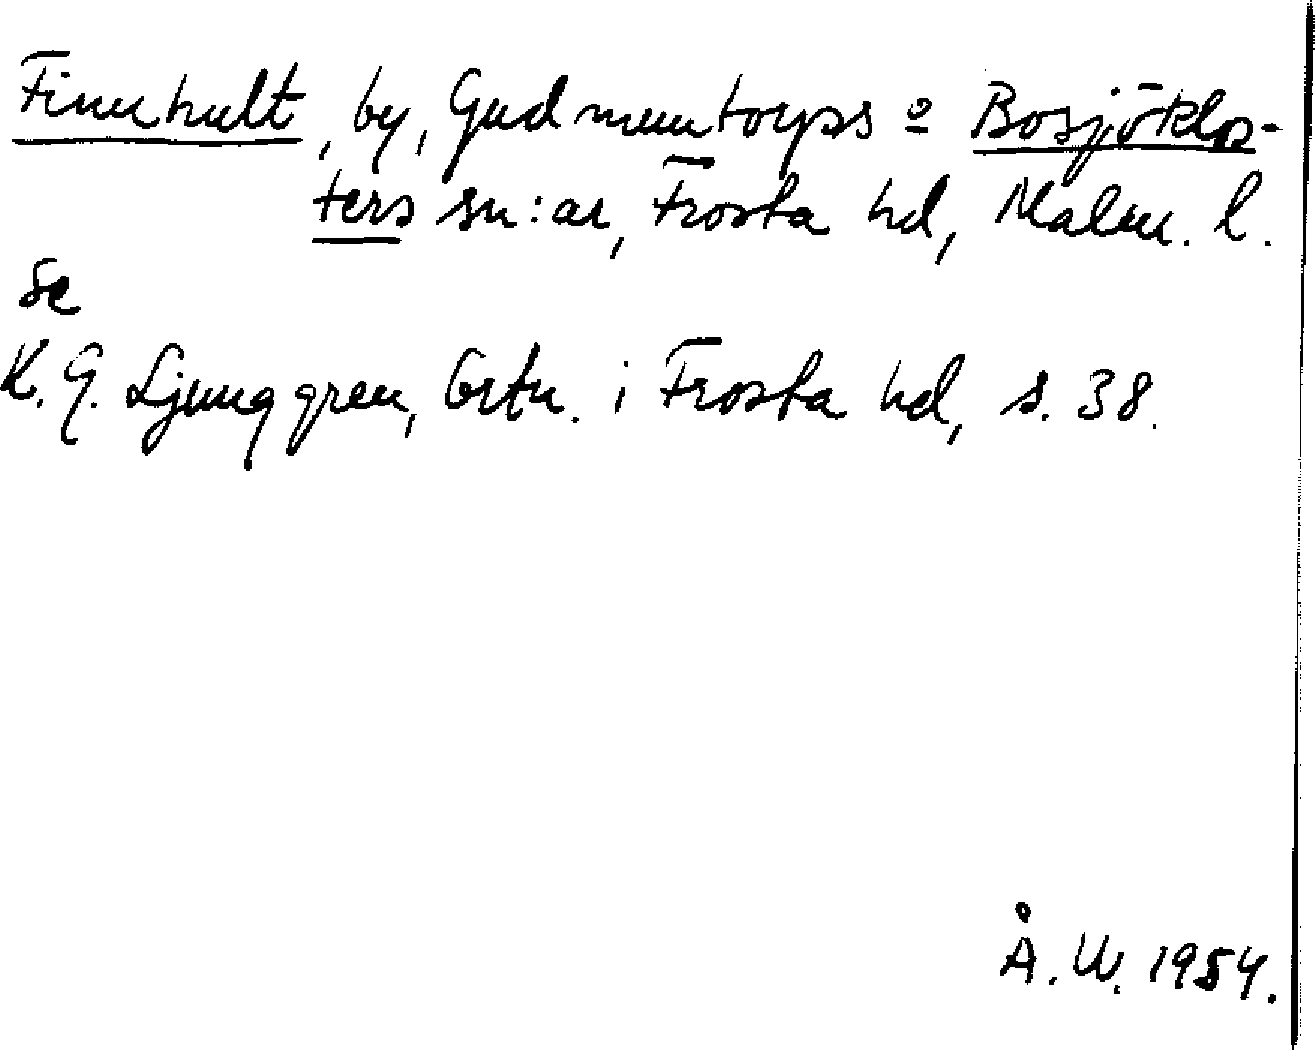 Finnhult, by, Gudmuntorps o Bosjöklos-
ters sn:ar, Frosta hd, Malm. l.
Se
K. G. Ljunggren, Ortn. i Frosta hd, s. 38.
Å. W. 1954.